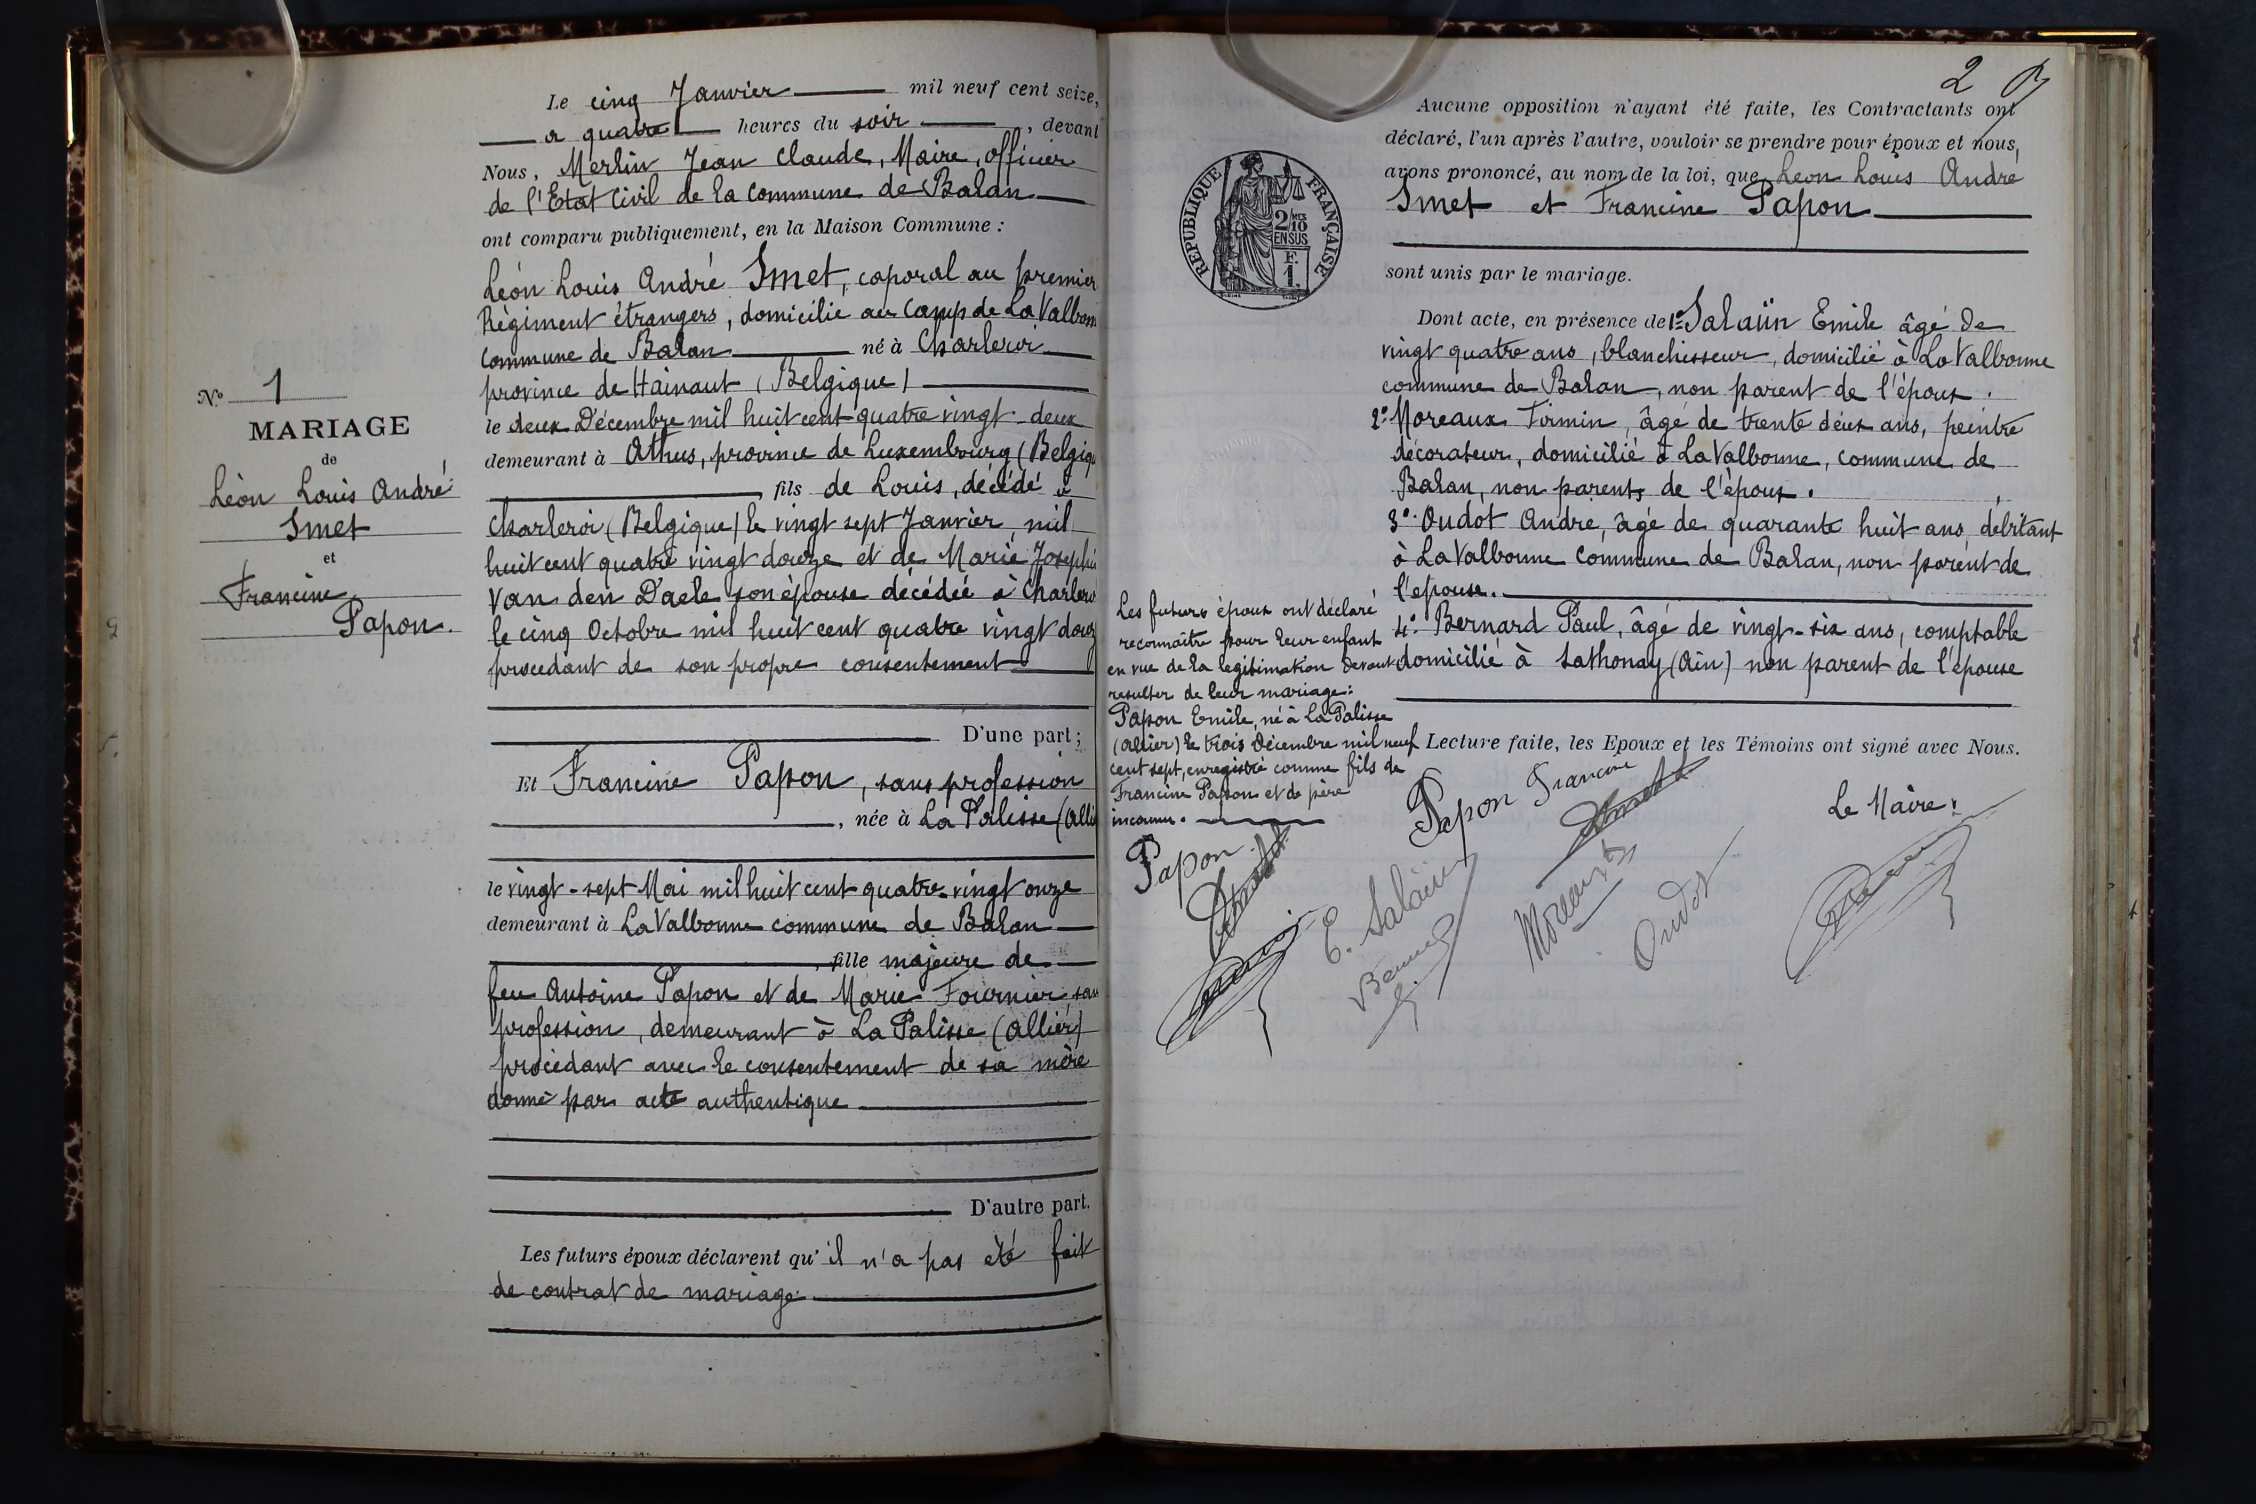 Le cinq Janvier mil neuf cent seize,
à quatre heures du soir, devant
Nous, Merlin Jean Claude, Maire, officier
de l'Etat Civil de la Commune de Balan
ont comparu publiquement, en la Maison Commune :
Léon Louis André Smet, caporal au premier
Régiment étrangers, domicilié au Camp de La Valbon
commune de Balan né à Charleroi
province de Hainaut (Belgique)
le deux Décembre mil huit cent quatre vingt-deux
demeurant à Athus, province de Luxembourg (Belgiq
fils de Louis, décédé à
Charleroi (Belgique) le vingt sept Janvier mil
huit cent quatre vingt douze et de Marie Joséphi
Van den Daele son épouse décédée à Charlero
le cinq Octobre mil huit cent quatre vingt douz
procédant de son propre consentement
D'une part;
N.º 1
MARIAGE
de
Léon Louis André
Smet
et
Francine
Papon.
Et Francine Papon, sans profession
, née à La Palisse (Alli
le vingt-sept Mai mil huit cent quatre-vingt onze
demeurant à La Valbonne commune de Balan
, fille majeure de
feu Antoine Papon et de Marie Fournier san
profession, demeurant à La Palisse (Allier)
procédant avec le consentement de sa mère
donné par acte authentique
D'autre part.
Les futurs époux déclarent qu'il n'a pas été fait
de contrat de mariage.
2
Aucune opposition n'ayant été faite, les Contractants ont
déclaré, l'un après l'autre, vouloir se prendre pour époux et nous,
avons prononcé, au nom de la loi, que Léon Louis André
Smet et Francine Papon
sont unis par le mariage.
RÉPUBLIQUE FRANÇAISE
2/10 MES
EN SUS
F.
1.
Dont acte, en présence de 1º Salaün Emile âgé de
vingt quatre ans, blanchisseur, domicilié à La Valbonne
commune de Balan, non parent de l'époux.
2º Moreaux Firmin, âgé de trente deux ans, peintre
décorateur, domicilié à La Valbonne, commune de
Balan, non parent de l'époux.
3º Oudot André, âgé de quarante huit ans, débitant
à La Valbonne commune de Balan, non parent de
l'épouse.
4º Bernard Paul, âgé de vingt-six ans, comptable
domicilié à Sathonay (Ain) non parent de l'épouse
Les futurs époux ont déclaré
reconnaître pour leur enfant
en vue de la légitimation devant
résulter de leur mariage:
Papon Emile, né à La Palisse
(Allier) le trois Décembre mil neuf
cent sept, enregistré comme fils de
Francine Papon et de père
inconnu.
Lecture faite, les Epoux et les Témoins ont signé avec Nous.
Papon Francine
Smet
Le Maire:
Papon
Smet
E. Salaün
Moreaux
Oudot
Bernard